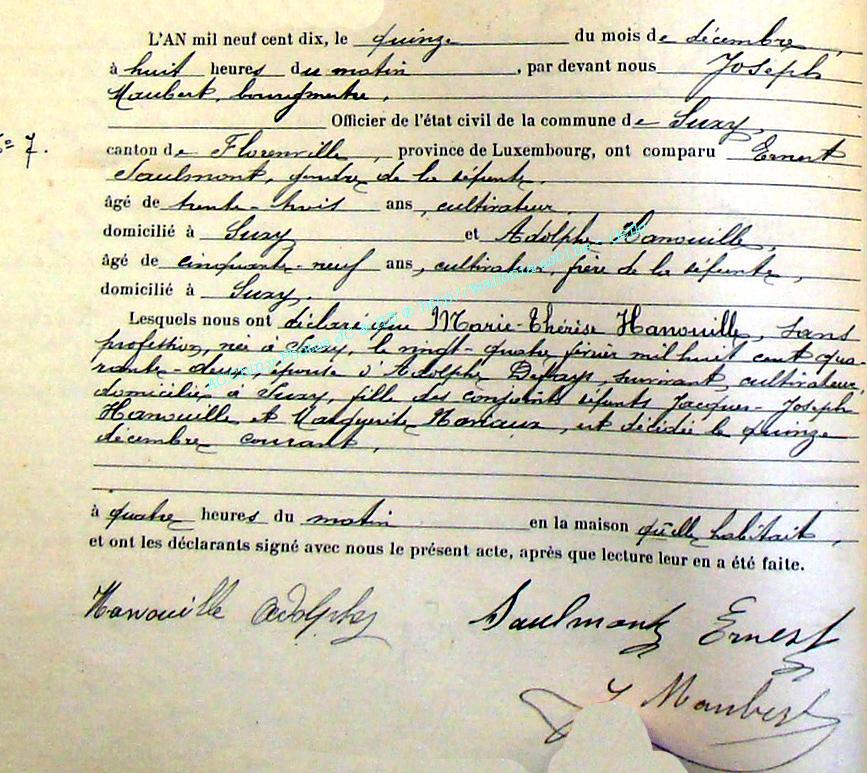 L'AN mil neuf cent dix, le quinze du mois de décembre,
à huit heures du matin, par devant nous Joseph
Maubert, bourgmestre,
Officier de l'état civil de la commune de Suxy,
7.
canton de Florenville, province de Luxembourg, ont comparu Ernest
Saulmont, gendre de la défunte,
âgé de trente-trois ans, cultivateur,
domicilié à Suxy et Adolphe Hanouille,
âgé de cinquante-neuf ans, cultivateur, frère de la défunte,
domicilié à Suxy.
Lesquels nous ont déclaré que Marie-Thérèse Hanouille, sans
profession, née à Suxy, le vingt-quatre février mil huit cent qua-
rante-deux, épouse d'Adolphe survivant, cultivateur,
domiciliée à Suxy, fille des conjoints défunts Jacques-Joseph
Hanouille et Marguerite est décédée le quinze
décembre courant,
à quatre heures du matin en la maison qu'elle habitait,
et ont les déclarants signé avec nous le présent acte, après que lecture leur en a été faite.
Hanouille Adolphe Saulmont Ernest
J Maubert